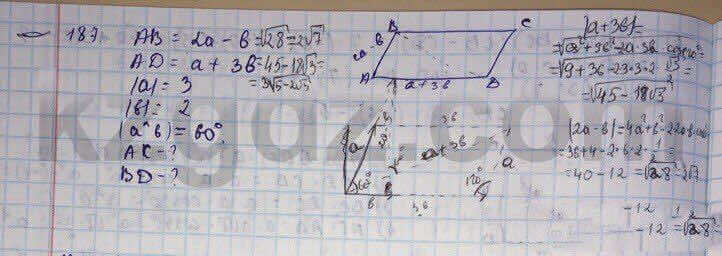 187
AB = 2a - b = √28 = 2√7
AD = a + 3b = √45-18√3 =
= 3√5-2√3
|a| = 3
|b| = 2
(a^b) = 60°
AC - ?
BD - ?
B
C
2a-b
A
a+3b
D
a
60°
b
3b
a+3b
a
120°
3b
|a+3b| =
= √9+36-2·3·3·2 √3/2
= √45-18√3
|2a-b| = 4a²+b²-2·2a·b·cos
= 36+4-2·6·2·1/2 =
= 40-12 = √28-2√7
-12
-12 = √28
kzgdz.com